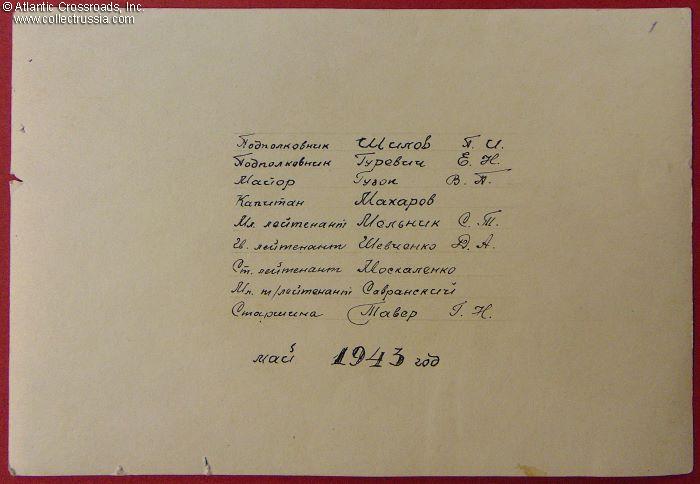 © Atlantic Crossroads, Inc.
www.collectrussia.com
1
Подполковник Шилов П. И.
Подполковник Гуревич Е. Н.
Майор Гузок В. П.
Капитан Махаров
Мл. лейтенант Мельник С. Т.
лейтенант Шевченко Д. А.
Ст. лейтенант Москаленко
Мл. т/лейтенант Савранский
Старшина Тавер Г. Н.
май 1943 год